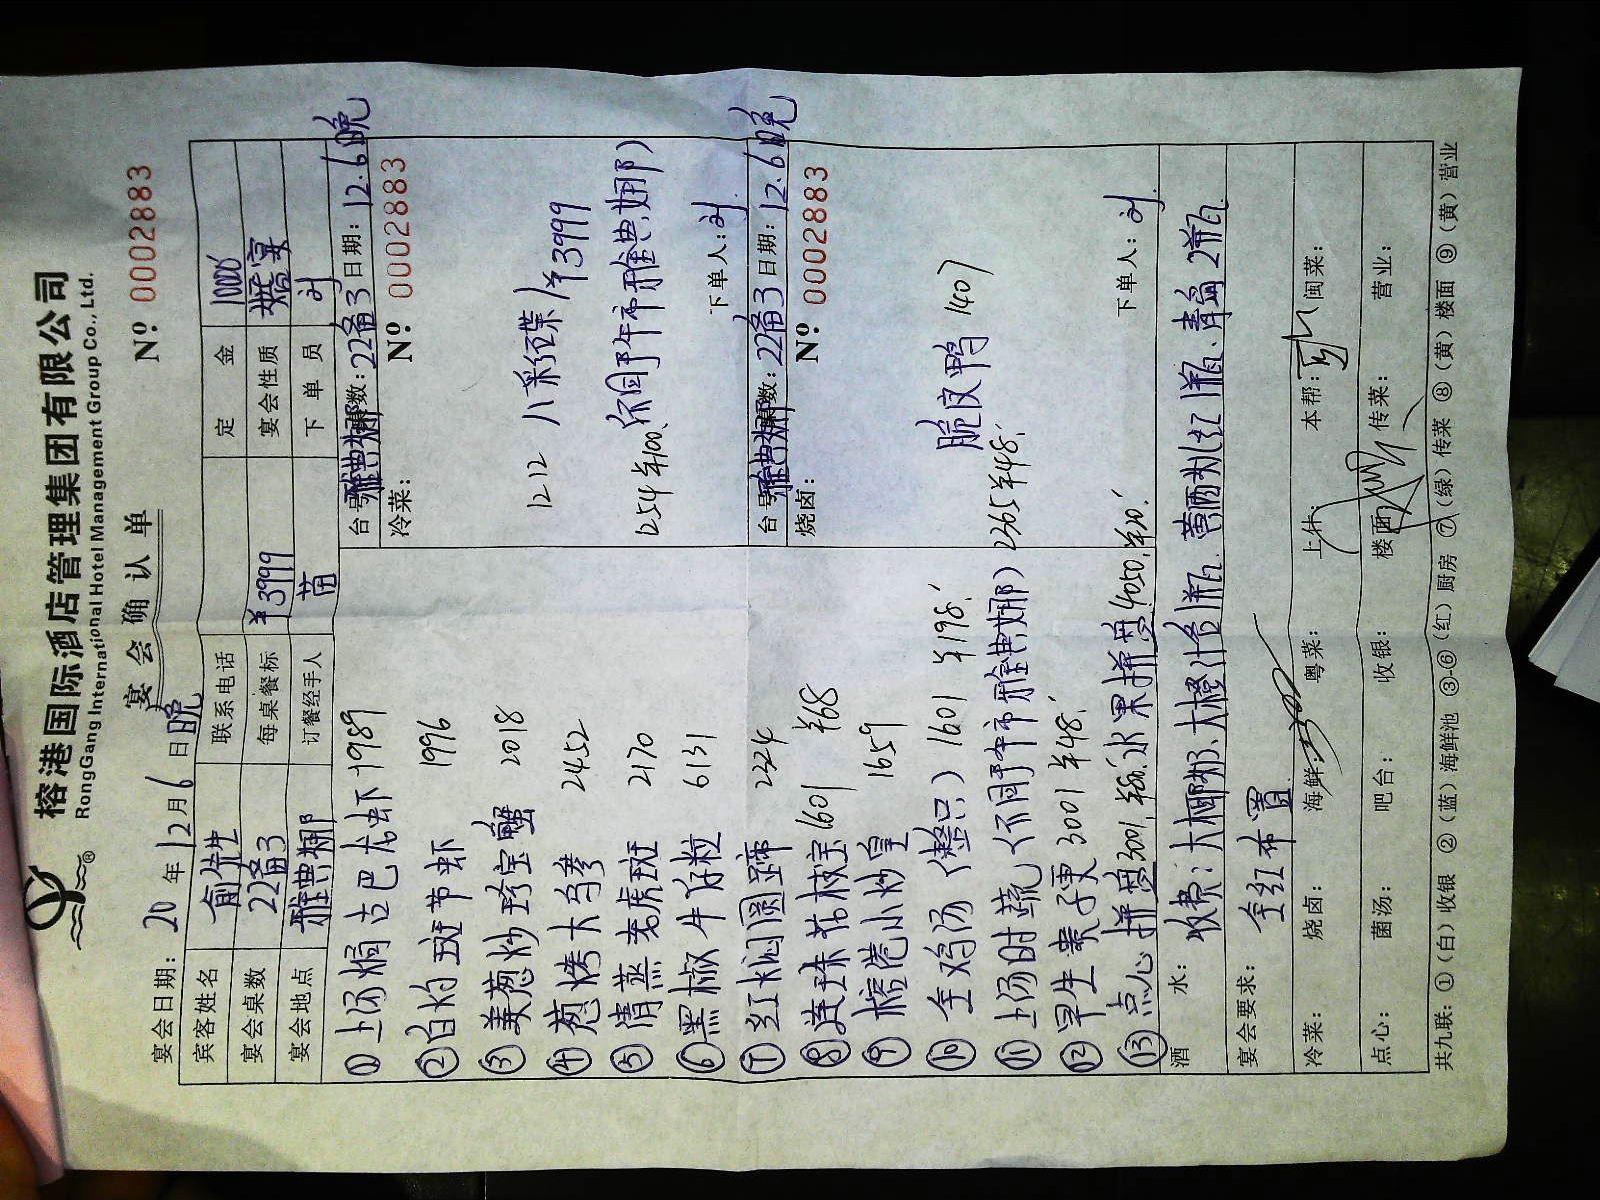 榕港国际酒店管理集团有限公司
RongGang International Hotel Management Group Co., Ltd.
宴会确认单
Nº 0002883
宴会日期: 20 年 12月6日晚
宾客姓名 俞先生 联系电话 定金 10000
宴会桌数 22备3 每桌餐标 ¥3999 宴会性质 婚宴
宴会地点 雅典娜 订餐经手人 苗 下单员 刘
① 上汤焗古巴龙虾 1989
② 白灼斑节虾 1996
③ 姜葱炒珍宝蟹 2018
④ 葱烤大乌参 2452
⑤ 清蒸老虎斑 2170
⑥ 黑椒牛仔粒 6131
⑦ 红焖圆蹄 2224
⑧ 1601 ¥68
⑨ 榕港小炒皇 1659
⑩ 全鸡汤(整只) 1601 ¥198.
⑪ 上汤时蔬(不同于午市雅典娜)
⑫ 3001 ¥48.
⑬ 点心拼盘 3001, 水果拼盘 4050, ¥20.
台号: 雅典娜 桌数: 22备3 日期: 12.6晚
冷菜: Nº 0002883
1212 八彩碟 ¥3999
1254 ¥100、 (不同于午市雅典娜)
下单人: 刘
台号: 雅典娜 桌数: 22备3 日期: 12.6晚
烧卤: Nº 0002883
脆皮鸭 1407
2365 ¥48.
下单人: 刘
酒水: 收费: 大椰奶、大橙汁各1瓶、红1瓶、青岛2瓶
宴会要求: 全红布置
冷菜: 烧卤: 海鲜: 粤菜: 上什: 本帮: 闽菜:
点心: 菌汤: 吧台: 收银: 楼面: 传菜: 营业:
共九联: ①(白)收银 ②(蓝)海鲜池 ③-⑥(红)厨房 ⑦(绿)传菜 ⑧(黄)楼面 ⑨(黄)营业